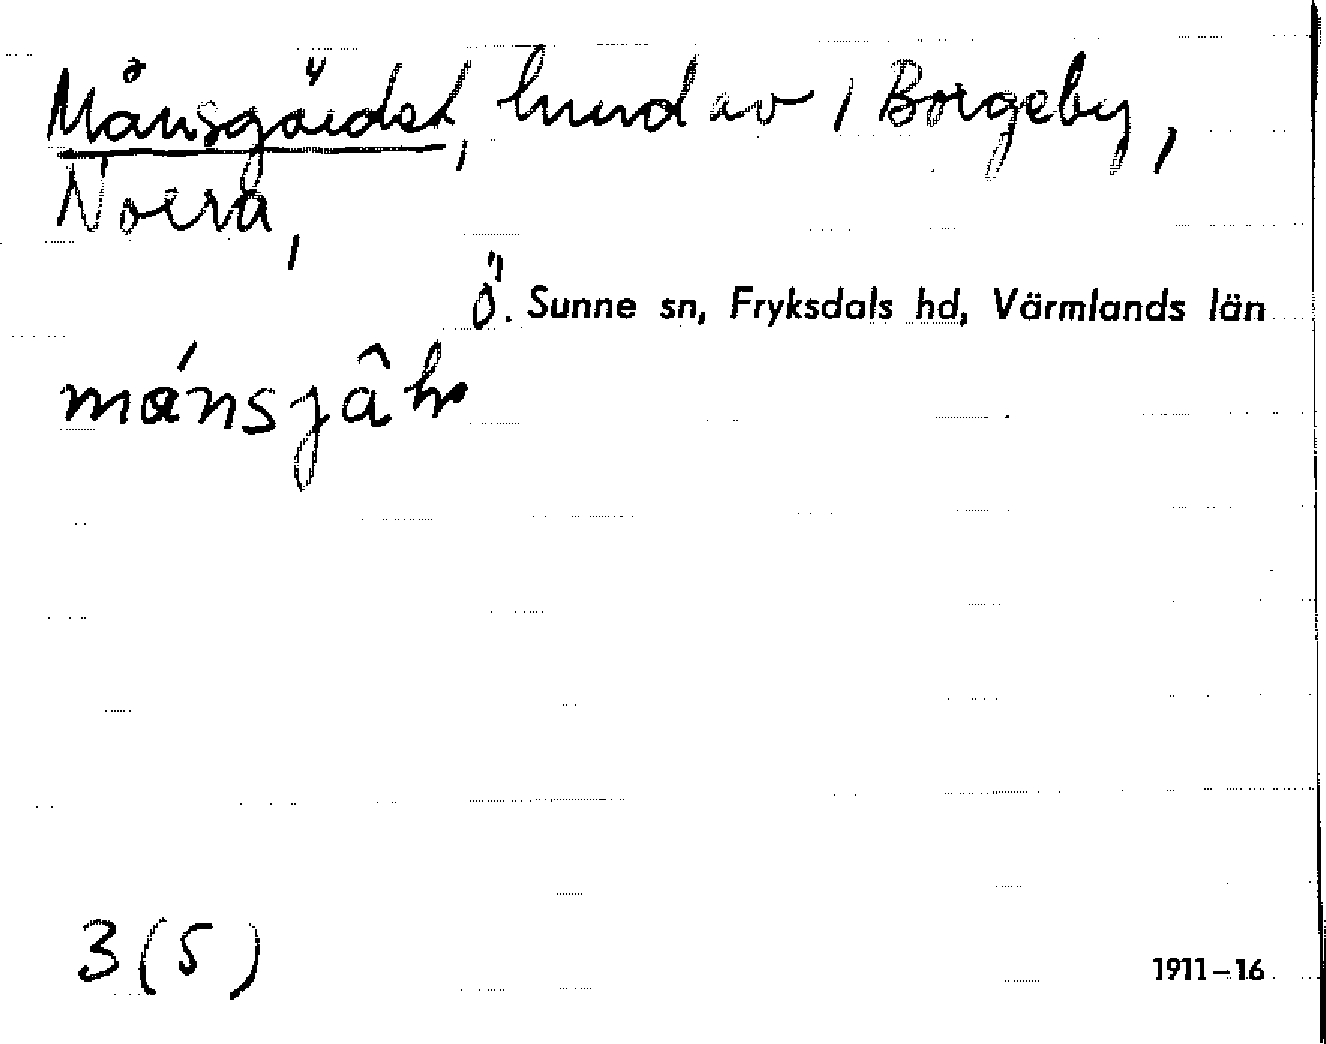 Månsgärdet, hmd av 1 Borgeby,
Norra,
Ö. Sunne sn, Fryksdals hd, Värmlands län
månsjâḷ
3(5)
1911–16